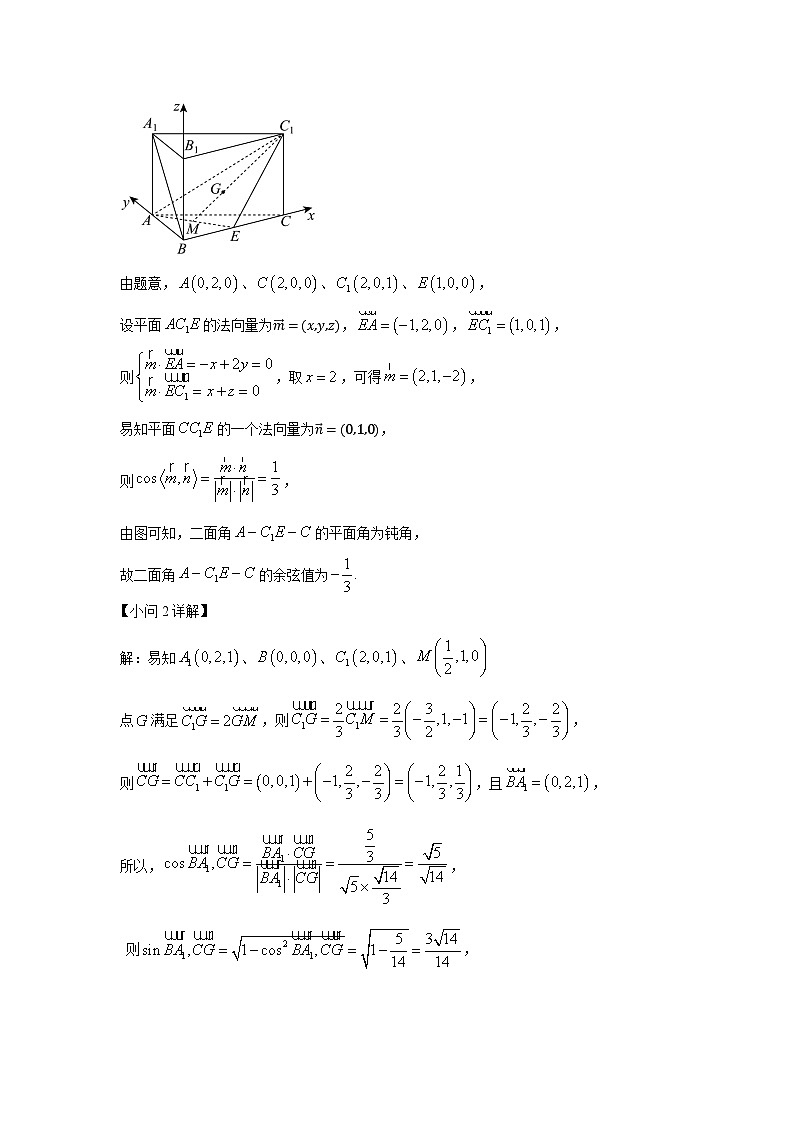 z
A₁
C₁
B₁
G
y
A
M
C
x
E
B
由题意，A(0,2,0)、C(2,0,0)、C₁(2,0,1)、E(1,0,0)，
设平面 AC₁E 的法向量为 m⃗ = (x,y,z)，EA⃗ = (−1,2,0)，EC₁⃗ = (1,0,1)，
则 { m⃗·EA⃗ = −x+2y = 0
m⃗·EC₁⃗ = x+z = 0 ，取 x = 2，可得 m⃗ = (2,1,−2)，
易知平面 CC₁E 的一个法向量为 n⃗ = (0,1,0)，
则 cos⟨m⃗,n⃗⟩ = (m⃗·n⃗)/(|m⃗|·|n⃗|) = 1/3，
由图可知，二面角 A−C₁E−C 的平面角为钝角，
故二面角 A−C₁E−C 的余弦值为 −1/3.
【小问 2 详解】
解：易知 A₁(0,2,1)、B(0,0,0)、C₁(2,0,1)、M(1/2,1,0)
点 G 满足 C₁G⃗ = 2GM⃗，则 C₁G⃗ = 2/3 C₁M⃗ = 2/3(−3/2,1,−1) = (−1,2/3,−2/3)，
则 CG⃗ = CC₁⃗ + C₁G⃗ = (0,0,1) + (−1,2/3,−2/3) = (−1,2/3,1/3)，且 BA₁⃗ = (0,2,1)，
所以，cos BA₁⃗,CG⃗ = (BA₁⃗·CG⃗)/(|BA₁⃗|·|CG⃗|) = (5/3)/(√5×√14/3) = √5/√14，
则 sin BA₁⃗,CG⃗ = √(1−cos² BA₁⃗,CG⃗) = √(1−5/14) = 3√14/14，